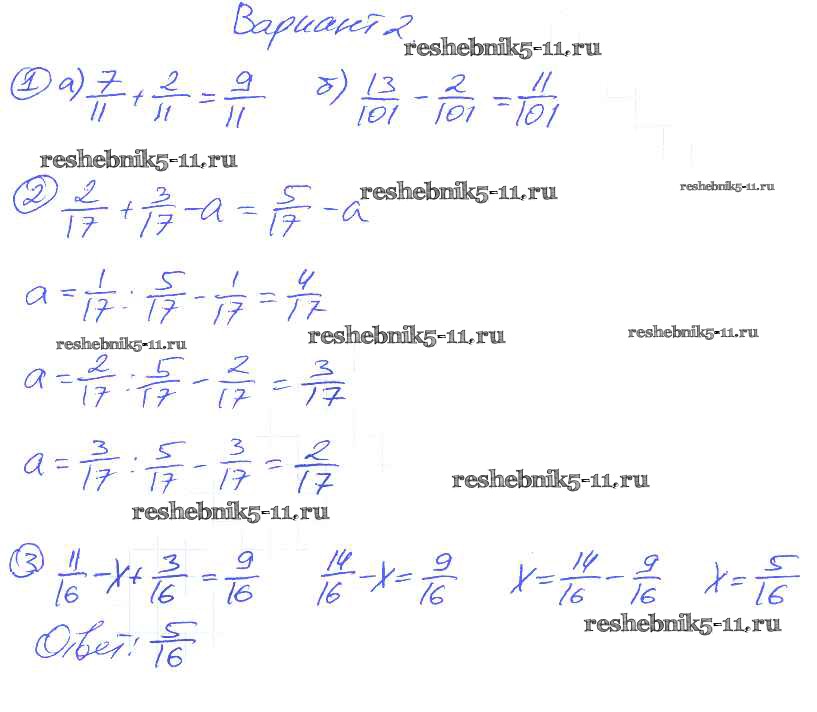 Вариант 2
reshebnik5-11.ru
① а) 7/11 + 2/11 = 9/11 б) 13/101 - 2/101 = 11/101
reshebnik5-11.ru
reshebnik5-11.ru
reshebnik5-11.ru
② 2/17 + 3/17 - а = 5/17 - а
а = 1/17 : 5/17 - 1/17 = 4/17
reshebnik5-11.ru
reshebnik5-11.ru
reshebnik5-11.ru
а = 2/17 : 5/17 - 2/17 = 3/17
а = 3/17 : 5/17 - 3/17 = 2/17
reshebnik5-11.ru
reshebnik5-11.ru
③ 11/16 - x + 3/16 = 9/16 14/16 - x = 9/16 x = 14/16 - 9/16 x = 5/16
reshebnik5-11.ru
Ответ: 5/16